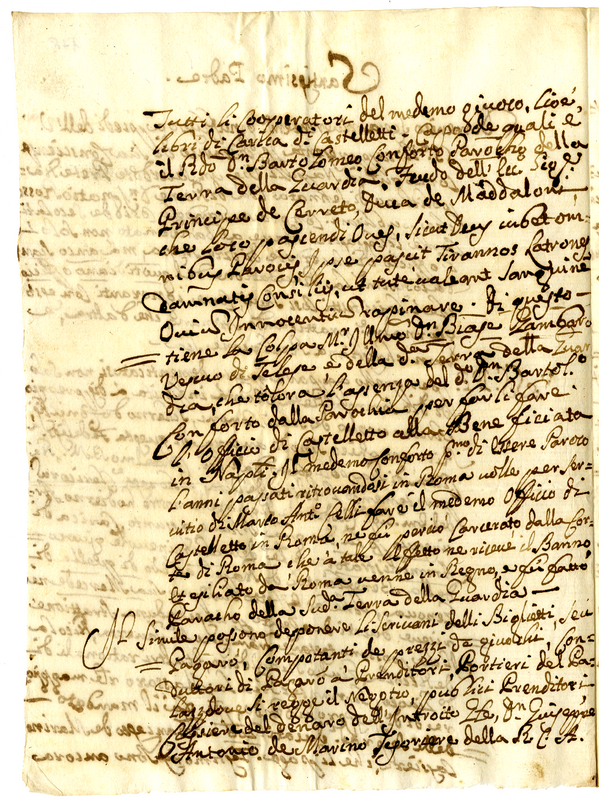 Tutti li Cooperatori del medemo giuoco, Cioè,
libri di Carica di Castelletti. Capo de quali è
il Rdo Dn Bartolomeo Conforto Parocho della
Terra della Guardia, Feudo dell' Ecc. Sig.e
Principe de Cerreto, Duca de Maddaloni
che loco pascendi Oves, sicut Deus iubet om-
nibus Parocis, Ipse pascit Tirannos Latrones
damnatis Consilijs, ut tute valeant sanguine
Ovium Innocentium rapinare. Di questo
tiene la Colpa Mr. Illmo Dn Biase Gambaro
Vescuo di Telese, e della da. Terra della Guar-
dia, che tolera l'assenza del do. Dn Bartol.o
Conforto dalla Parochia, per farli fare
l'Officio di Castelletto alla Beneficiata
in Napoli. Il medemo Conforto pmo. di essere Paroco
l'anni passati ritrovandosi in Roma volle per ser-
vitio di Marco Anto. Celli fare il medemo Officio di
Castelletto in Roma, ne fù perciò Carcerato dalla Cor-
te di Roma che à tale effetto ne ricevé il Banno
et esiliato da Roma venne in Regno, e fù fatto
Parocho della Suda. Terra della Guardia
Il Simile possono deponere li Scrivani delli Biglietti, seu
Pagarò, Computanti de prezzi da giuochi, Con-
duttori di Pagarò à Prenditori, Portieri del Pa-
lazzo dove si regge il Negotio, publici Prenditori
Cassiere del denaro dell' Introito &c, Dn Giuseppe
Antonio de Marino Tesoriere della R. C. A.